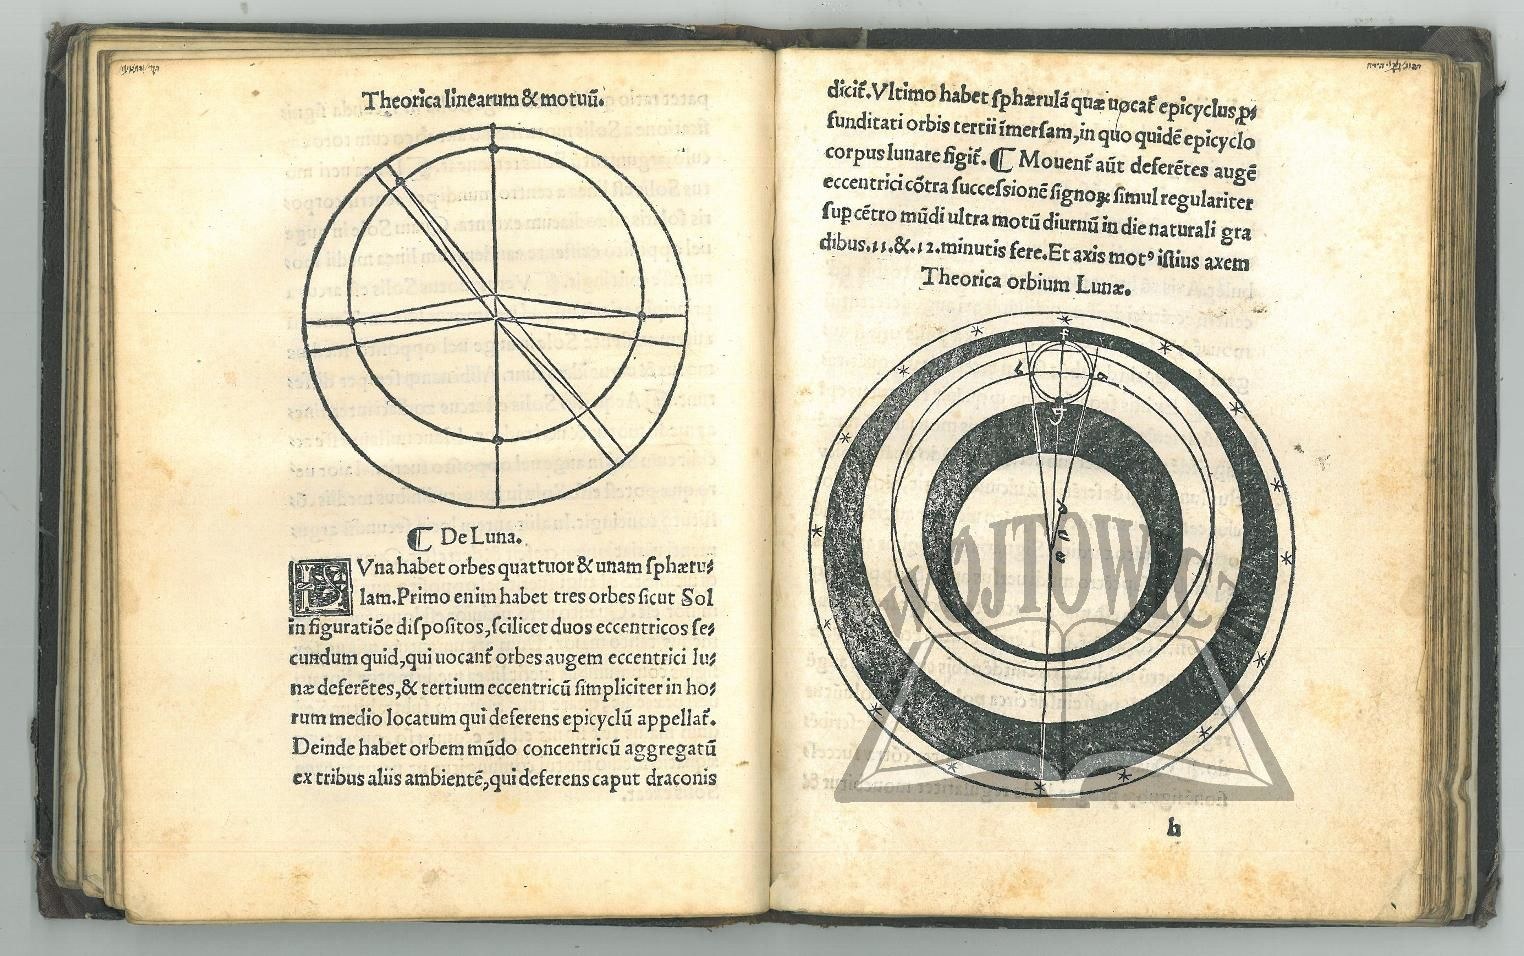 Theorica linearum & motuū.
¶ De Luna.
LVna habet orbes quattuor & unam sphæru⸗
lam. Primo enim habet tres orbes sicut Sol
in figuratiõe dispositos, scilicet duos eccentricos se⸗
cundum quid, qui uocant᷑ orbes augem eccentrici lu⸗
næ deferẽtes, & tertium eccentricū simpliciter in ho⸗
rum medio locatum qui deferens epicyclū appellat᷑.
Deinde habet orbem mūdo concentricū aggregatū
ex tribus aliis ambientẽ, qui deferens caput draconis
dicit᷑. Vltimo habet sphærulā quæ uocat᷑ epicyclus, ꝓ⸗
funditati orbis tertii īmersam, in quo quidẽ epicyclo
corpus lunare figit᷑. ¶ Mouent᷑ aūt deferẽtes augẽ
eccentrici cõtra successionẽ signoꝝ simul regulariter
suꝑ cẽtro mūdi ultra motū diurnū in die naturali gra
dibus .11. &. 12. minutis fere. Et axis motꝰ istius axem
Theorica orbium Lunæ.
WÓJTOWICZ
h